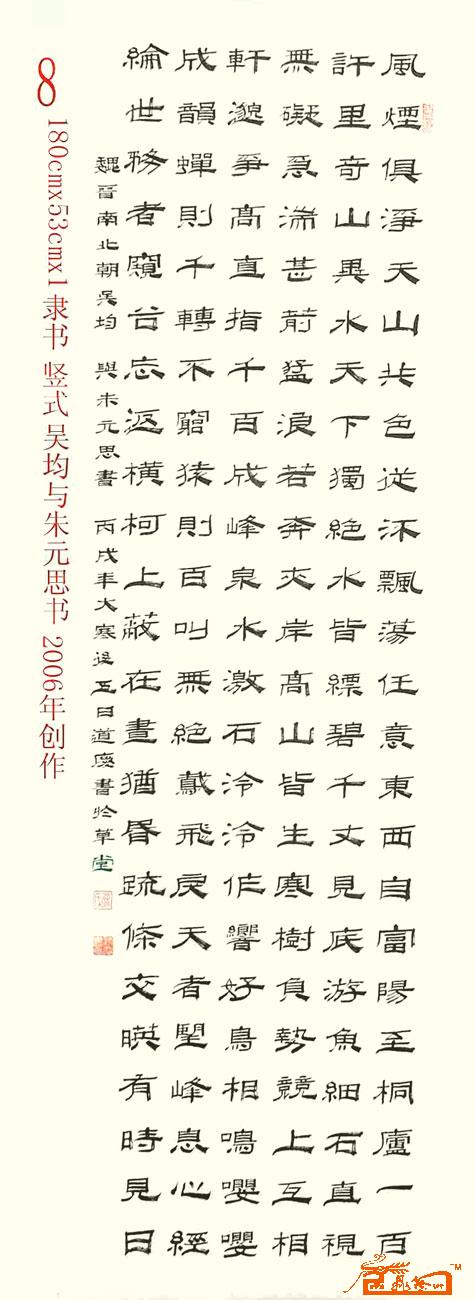 風煙俱淨天山共色從流飄蕩任意東西自富陽至桐廬一百
許里奇山異水天下獨絕水皆縹碧千丈見底游魚細石直視
無礙急湍甚箭猛浪若奔夾岸高山皆生寒樹負勢競上互相
軒邈爭高直指千百成峰泉水激石泠泠作響好鳥相鳴嚶嚶
成韻蟬則千轉不窮猿則百叫無絕鳶飛戾天者望峰息心經
綸世務者窺谷忘返橫柯上蔽在晝猶昏疏條交暎有時見日
魏晉南北朝吳均 與朱元思書 丙戌年大寒後五日道慶書於草堂
8
180cmx53cmx1 隶书 竖式 吴均与朱元思书 2006年创作